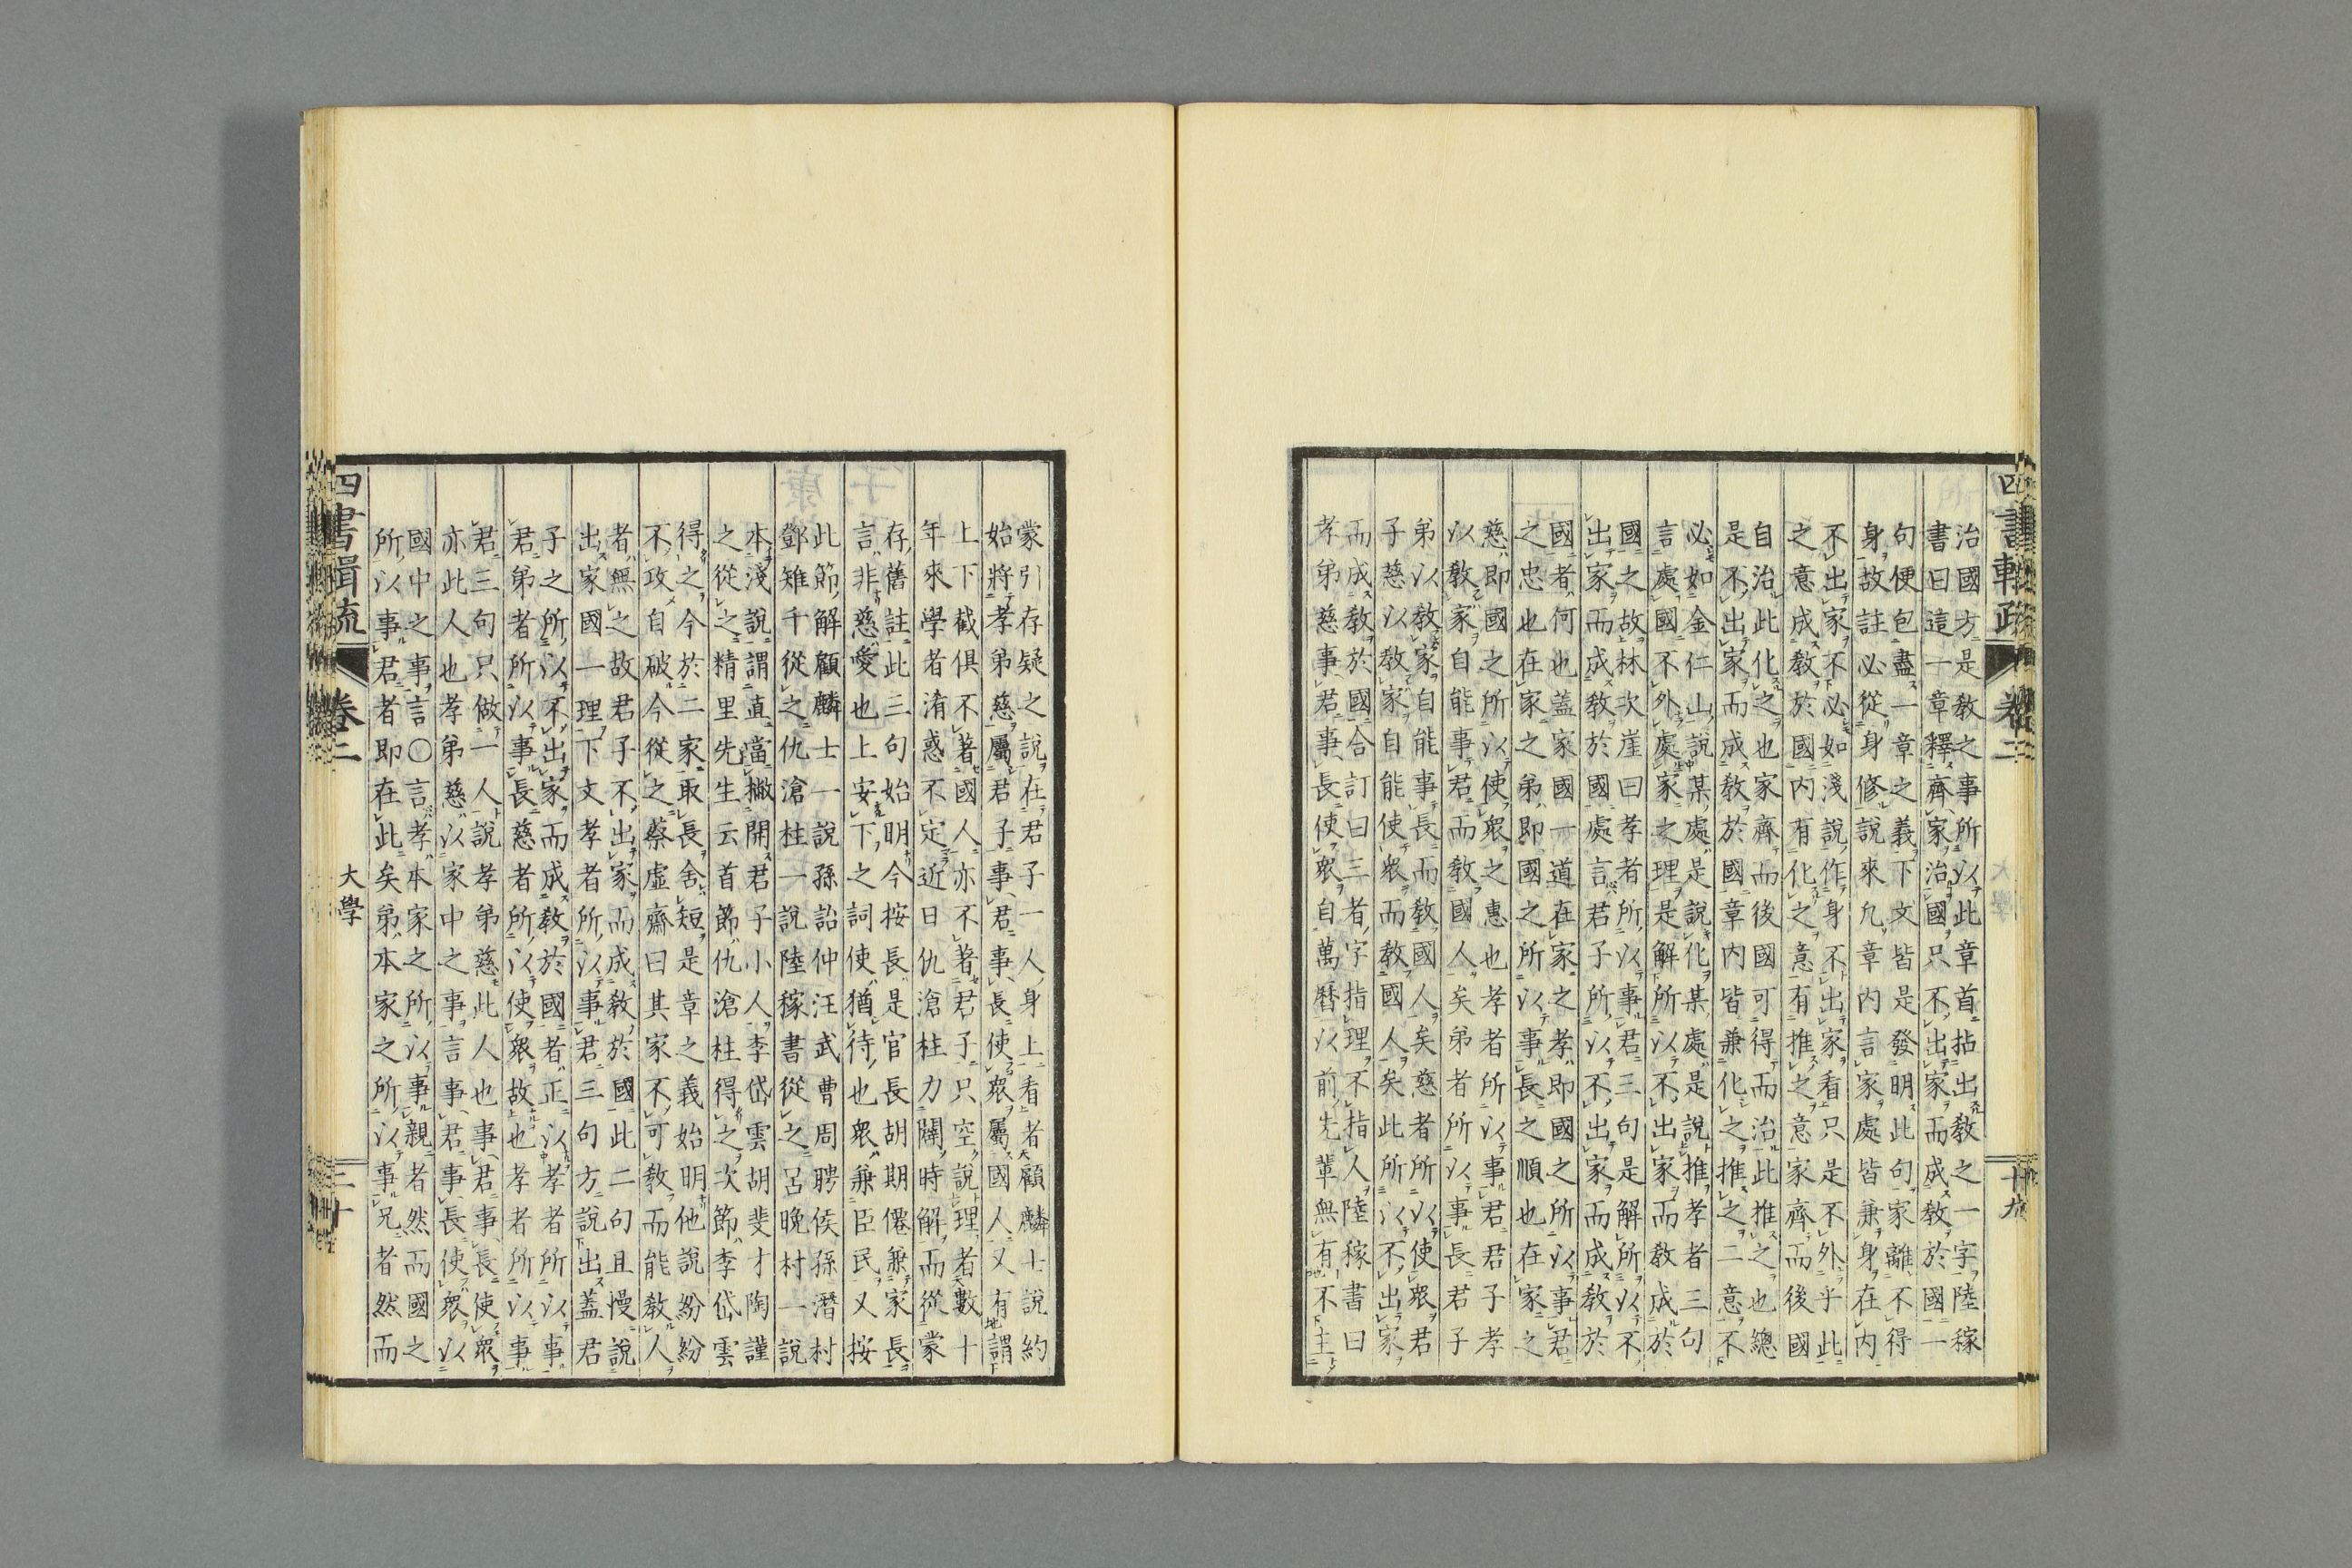 治國方是教之事所以此章首拈出教之一字陸稼
書曰這一章釋齊家治國只不出家而成教於國一
句便包盡一章之義下文皆是發明此句家離不得
身故註必從身修說來凡章内言家處皆兼身在内
不出家不必如淺說作身不出家看只是不外乎此
之意成教於國内有化之意有推之意家齊而後國
自治此化之也家齊而後國可得而治此推之也總
是不出家而成教於國章内皆兼化之推之二意不
必如金仁山說某處是說化某處是說推孝者三句
言處國不外處家之理是解所以不出家而教成於
國之故林次崖曰孝者所以事君三句是解所以不
出家而成教於國處言君子所以不出家而成教於
國者何也蓋家國一道在家之孝即國之所以事君
之忠也在家之弟即國之所以事長之順也在家之
慈即國之所以使衆之惠也孝者所以事君君子孝
以教家自能事君而教國人矣弟者所以事長君子
弟以教家自能事長而教國人矣慈者所以使衆君
子慈以教家自能使衆而教國人矣此所以不出家
而成教於國合訂曰三者字指理不指人陸稼書曰
孝弟慈事君事長使衆自萬曆以前先輩無有不主
四書輯疏
卷二
大學
十九
蒙引存疑之說在君子一人身上看者顧麟士說約
始將孝弟慈屬君子事君事長使衆屬國人又有謂
上下截俱不著國人亦不著君子只空說理者數十
年來學者淆惑不定近日仇滄柱力闢時解而從蒙
存舊註此三句始明今按長是官長胡期僊兼家長
言非慈愛也上安下之詞使猶待也衆兼臣民又按
此節解顧麟士一說孫詒仲汪武曹周聘侯孫潛村
鄧雉千從之仇滄柱一說陸稼書從之呂晚村一說
本淺說謂直當撇開君子小人李岱雲胡斐才陶謹
之從之精里先生云首節仇滄柱得之次節李岱雲
得之今於二家取長舍短是章之義始明他說紛紛
不攻自破今從之蔡虛齋曰其家不可教而能教人
者無之故君子不出家而成教於國此二句且慢說
出家國一理下文孝者所以事君三句方說出蓋君
子之所以不出家而成教於國者正以孝者所以事
君弟者所以事長慈者所以使衆故也孝者所以事
君三句只做一人說孝弟慈此人也事君事長使衆
亦此人也孝弟慈以家中之事言事君事長使衆以
國中之事言〇言孝本家之所以事親者然而國之
所以事君者即在此矣弟本家之所以事兄者然而
四書輯疏
卷二
大學
二十